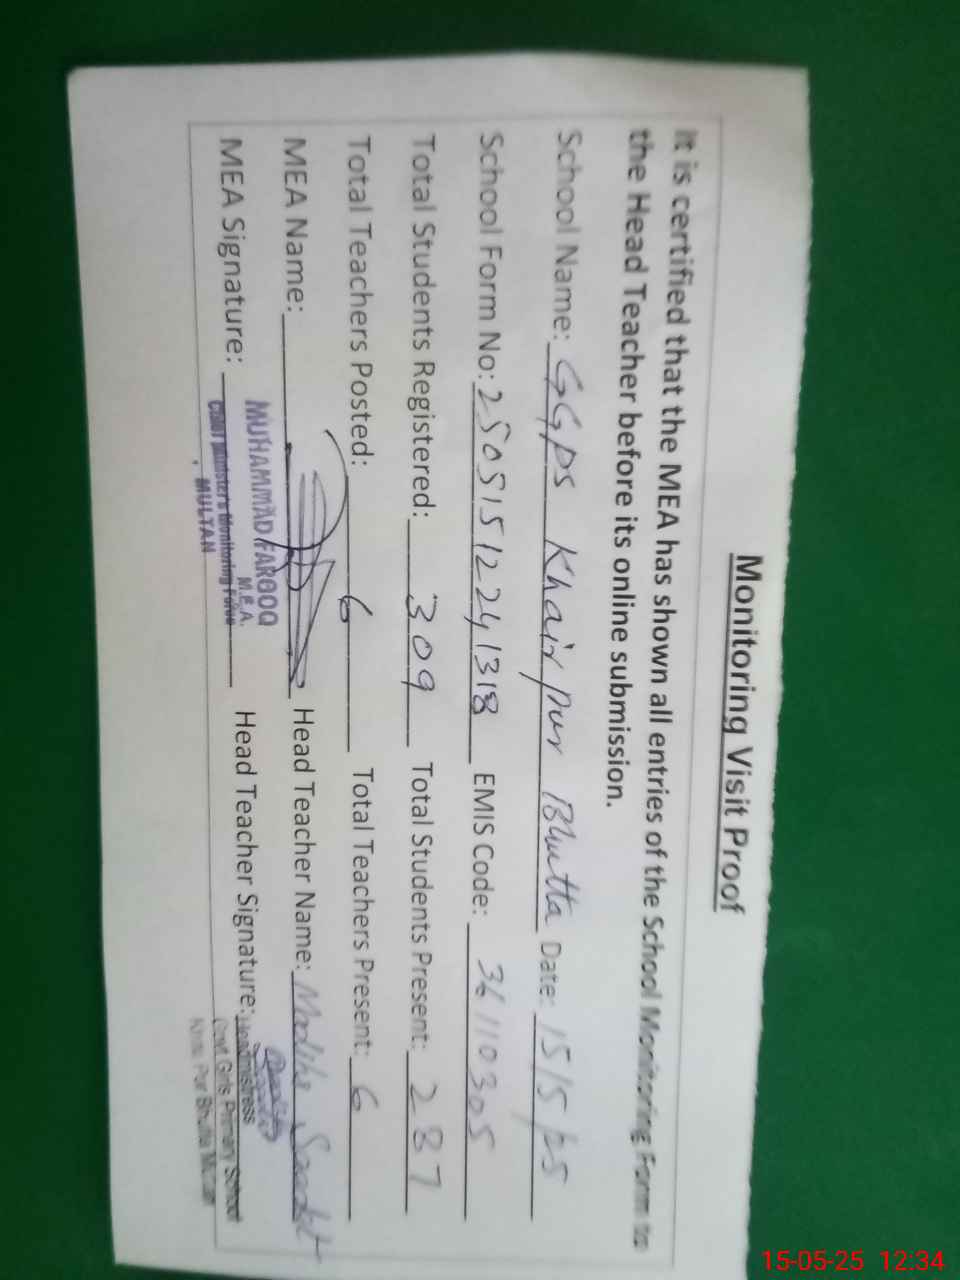 Monitoring Visit Proof
It is certified that the MEA has shown all entries of the School Monitoring Form to
the Head Teacher before its online submission.
School Name: GGPS Khair pur Bhutta Date: 15/5/25
School Form No: 25051512241318 EMIS Code: 36110305
Total Students Registered: 309 Total Students Present: 287
Total Teachers Posted: 6 Total Teachers Present: 6
MEA Name: Head Teacher Name: Madiha
MEA Signature: Head Teacher Signature:
MUHAMMAD FAROOQ
M.E.A.
Chief Minister's Monitoring Force
MULTAN
Headmistress
Govt Girls Primary School
Pur Bhutta
15-05-25 12:34